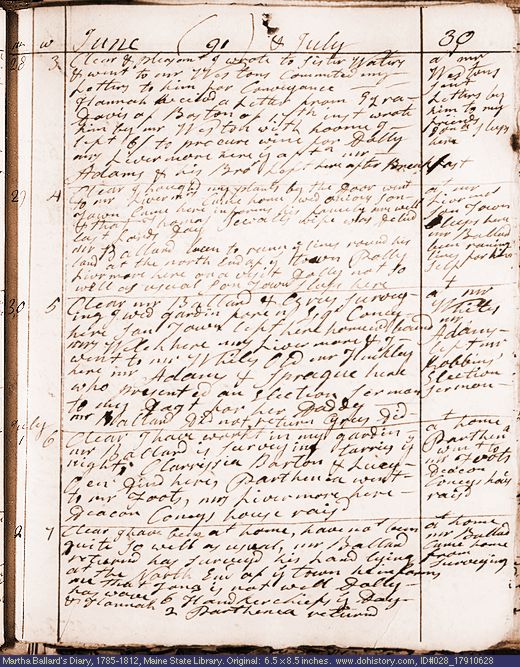 m w June (91) & July 39
28 3 Clear & pleasant I wrote to Sister Waters
& went to mr Westons Committed my
Letters to him for Conveyance
Hannah received a Letter from Ezra
Davis of Boston of 17th inst wrote
him by mr Weston with
to procure wine for Dolly
mrs Livermore here
Adams & his here after Breakfast
a mr
Westons
sent
Letters by
him to my
friends
here
29 4 Clear I houghed my plants by the Door went
to mr Livermores Came home
Town Came here informs his family are well
& that wife was Delivd
last Lords Day
mr Ballard been to runing lines round his
land at the north End of Town Polly
Livermore here on a visit Dolly not so
well as usual Son Town sleeps here
a mr
Livermores
Son Town
sleeps here
mr Ballard
been runing
lines for him
self
30 5 Clear mr Ballard & Cyrus survey
ing I wed gardin
here Son Town left here homeward bound
here mrs Livermore &
went to mr Whites Old mr Hinkley
here mr Adams & Sprague here
who presented an Election Sermon
to my Dagt for her Daddy
mr Ballard Did not return Cyrus Did
a mr
Whites
mr
Adams
left mr
Robbins'
Election
Sermon
July
1 6 Clear I have workt in my gardin
mr Ballard is surveying tarries
night Clarissia Barton & Lucy
here Parthena went
to mr Foots, mrs Livermore here
Deacon Conys house rais'd
at home
Parthena
went to
mr Foots
Deacon
Conys hous
rais'd
2 7 Clear I have been at home, have not been
quite so well as usual, mr Ballard
returnd has survey'd his land lying
at the North End of Town he informs
me that is not well Dolly
has wove 6 Handkerchiefs
& Hannah 2 Parthena returnd
at home
mr Ballard
Came home
from
surveying
Martha Ballard's Diary, 1785-1812, Maine State Library. Original: 6.5 x 8.5 inches. www.dohistory.com, ID#028_17910628